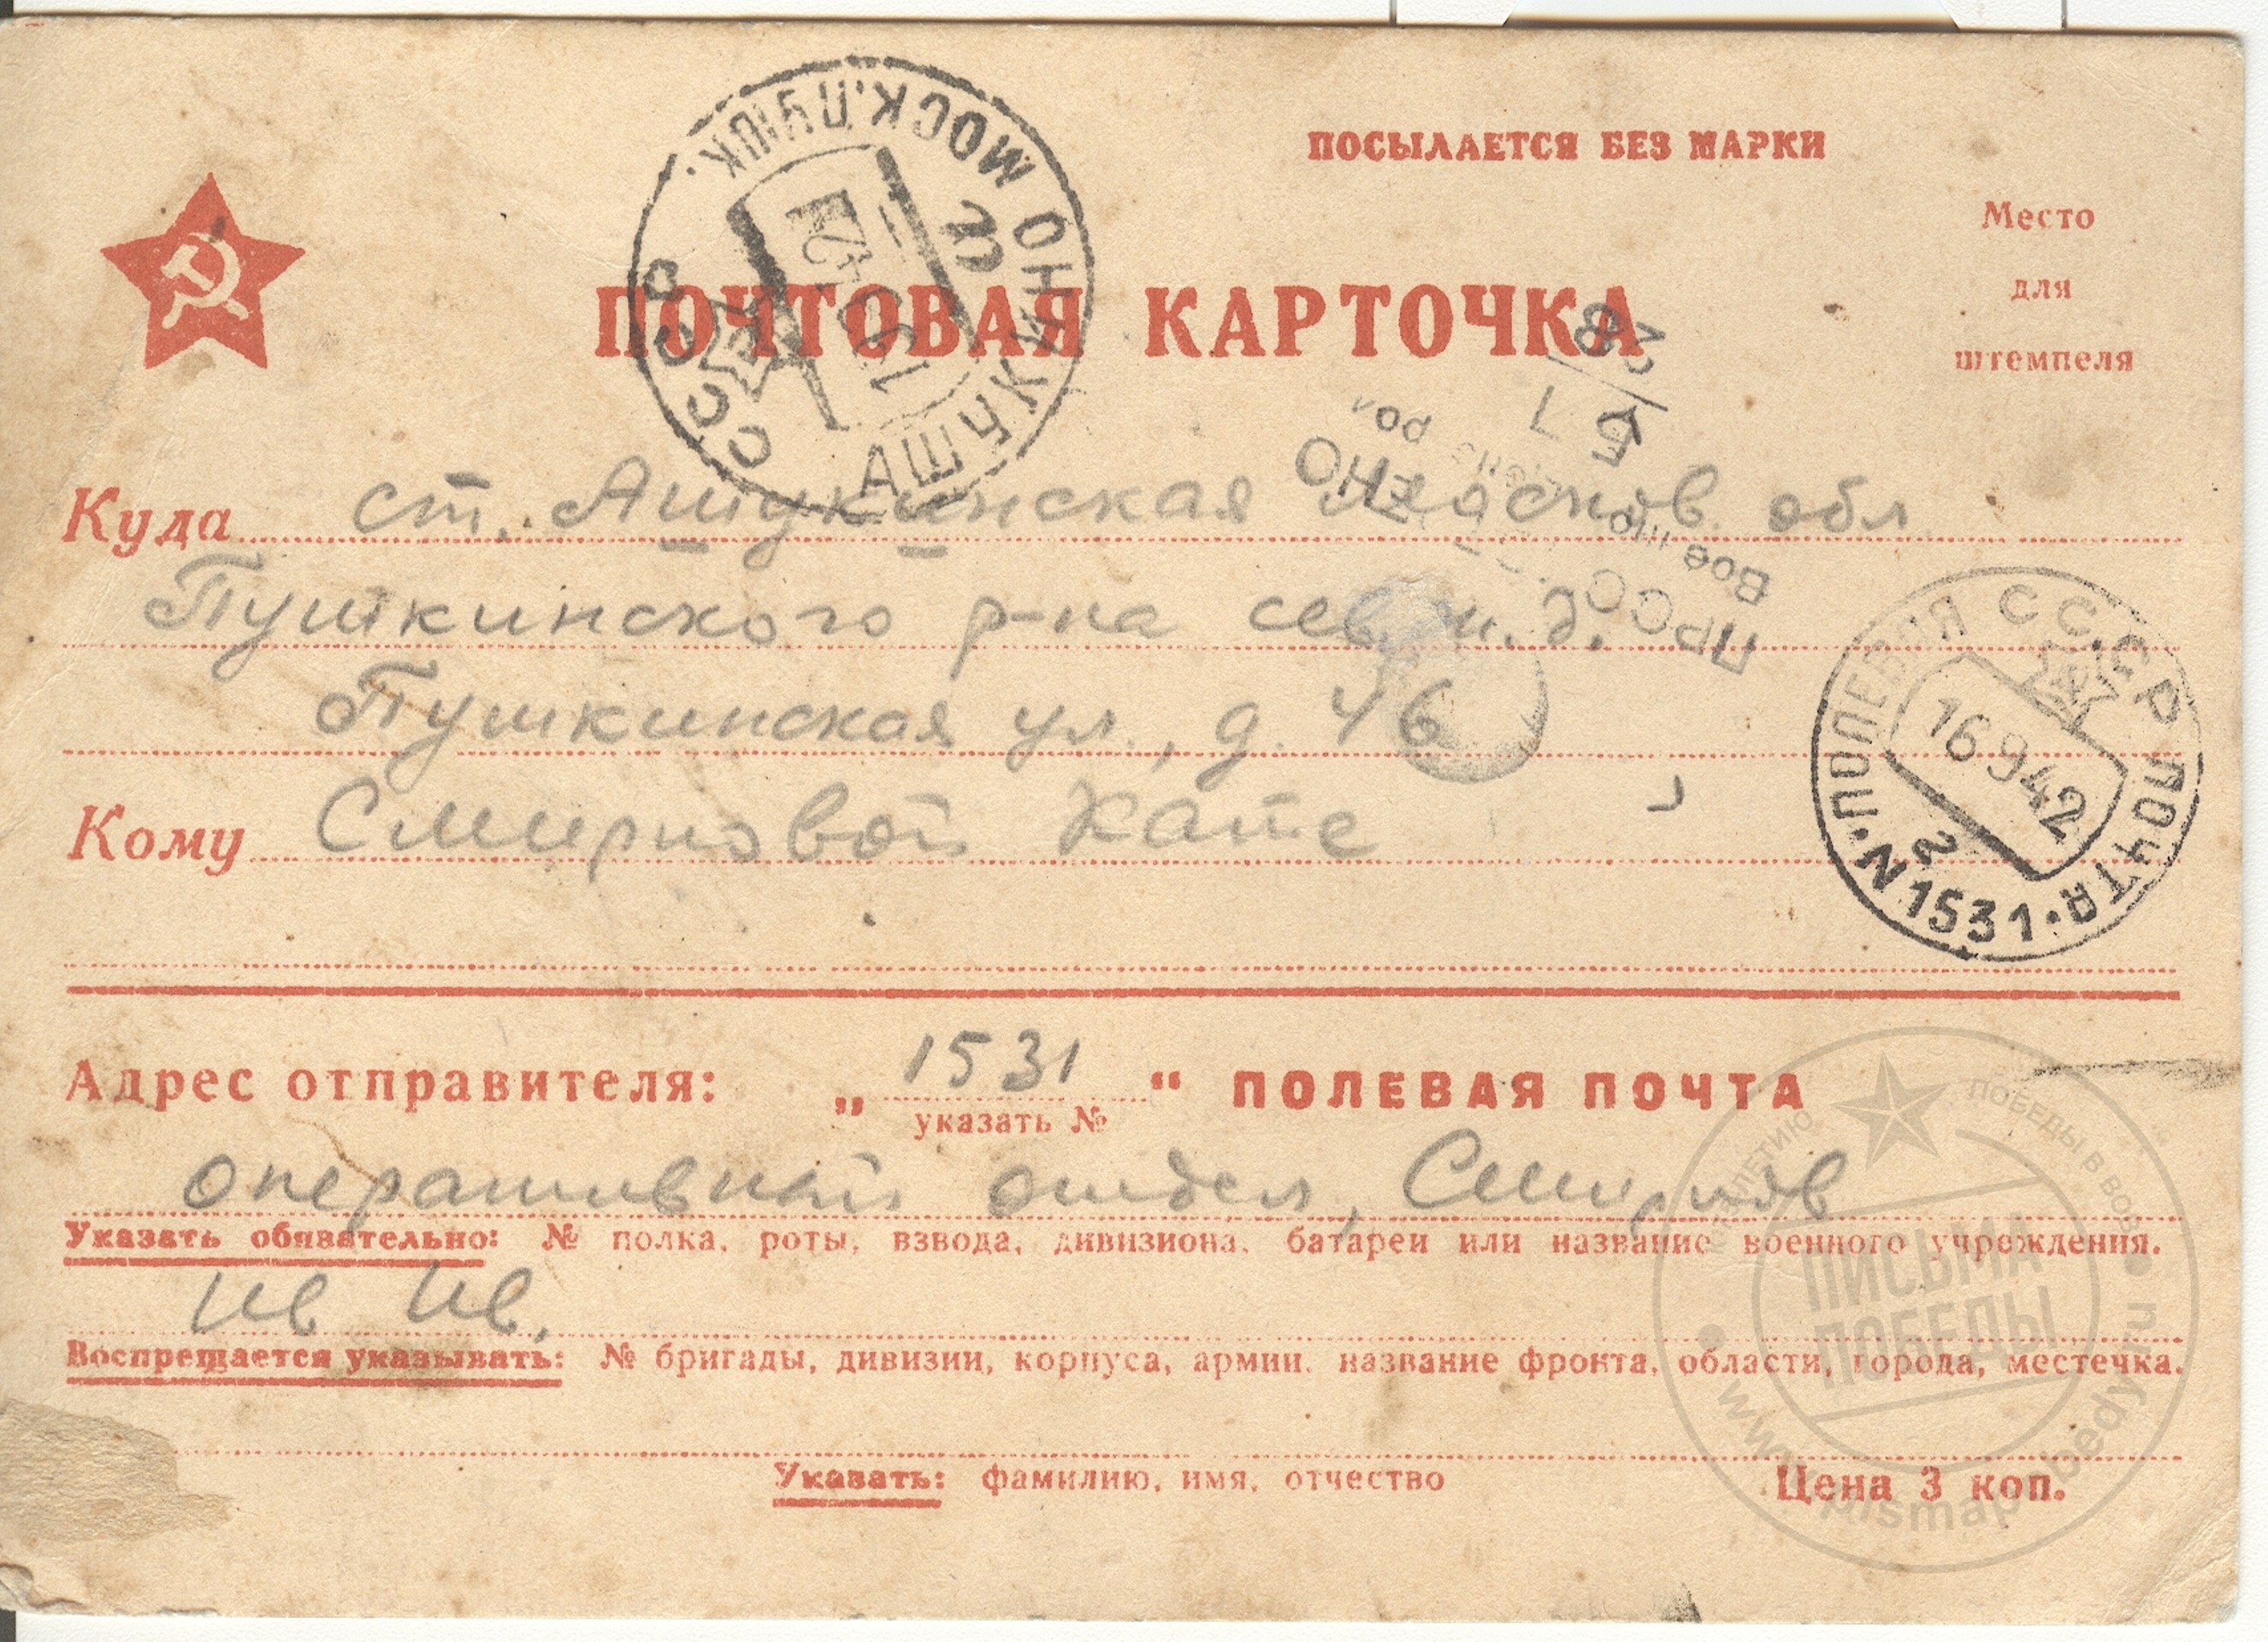 ПОСЫЛАЕТСЯ БЕЗ МАРКИ
Место
для
штемпеля
ПОЧТОВАЯ КАРТОЧКА
СССР
АШУКИНО МОСК.
Куда ст. Ашукинская Москов. обл
Пушкинского р-на сев. ж. д.
Пушкинская ул., д. 46
Кому Смирновой Кате
СССР ПОЧТА
ПОЛЕВАЯ
16 9 42
2
П.П. N 1531
Адрес отправителя: „ 1531 “ ПОЛЕВАЯ ПОЧТА
указать №
оперативный отдел, Смирнов
Указать обязательно: № полка, роты, взвода, дивизиона, батареи или название военного учреждения.
Ив Ив.
Воспрещается указывать: № бригады, дивизии, корпуса, армии, название фронта, области, города, местечка.
Указать: фамилию, имя, отчество
Цена 3 коп.
ПИСЬМА
ПОБЕДЫ